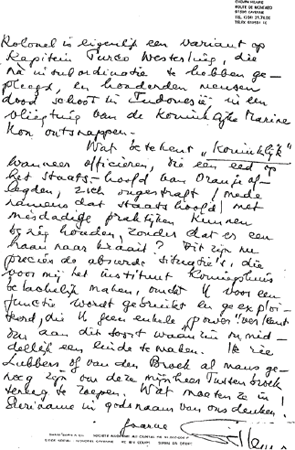 Kolonel is eigenlijk een variant op
Kapitein Turco Westerling, die
na insubordinatie te hebben ge-
pleegd, en honderden mensen
dood schoot in Indonesië, in een
vliegtuig van de Koninklijke Marine
kon ontsnappen.
Wat betekent „Koninklijk"
wanneer officieren, die een eed op
het Staats-hoofd van Oranje af-
legden, zich ongestraft (mede
namens dat staatshoofd) met
misdadige praktijken kunnen
bezig houden, zonder dat er een
haan naar kraait? Dit zijn nu
precies de absurde situatie's, die
voor mij het instituut Koningshuis
belachelijk maken, omdat U voor een
functie wordt gebruikt en geexploi-
teerd, die U geen enkele „power"
om aan dit soort waanzin onmid-
dellijk een einde te maken.
Lubbers of van den Broek al mans ge-
noeg zijn om deze mijnheer Tussenbroek
terug te roepen. Wat moeten ze in
Suriname in godsnaam van ons denken.